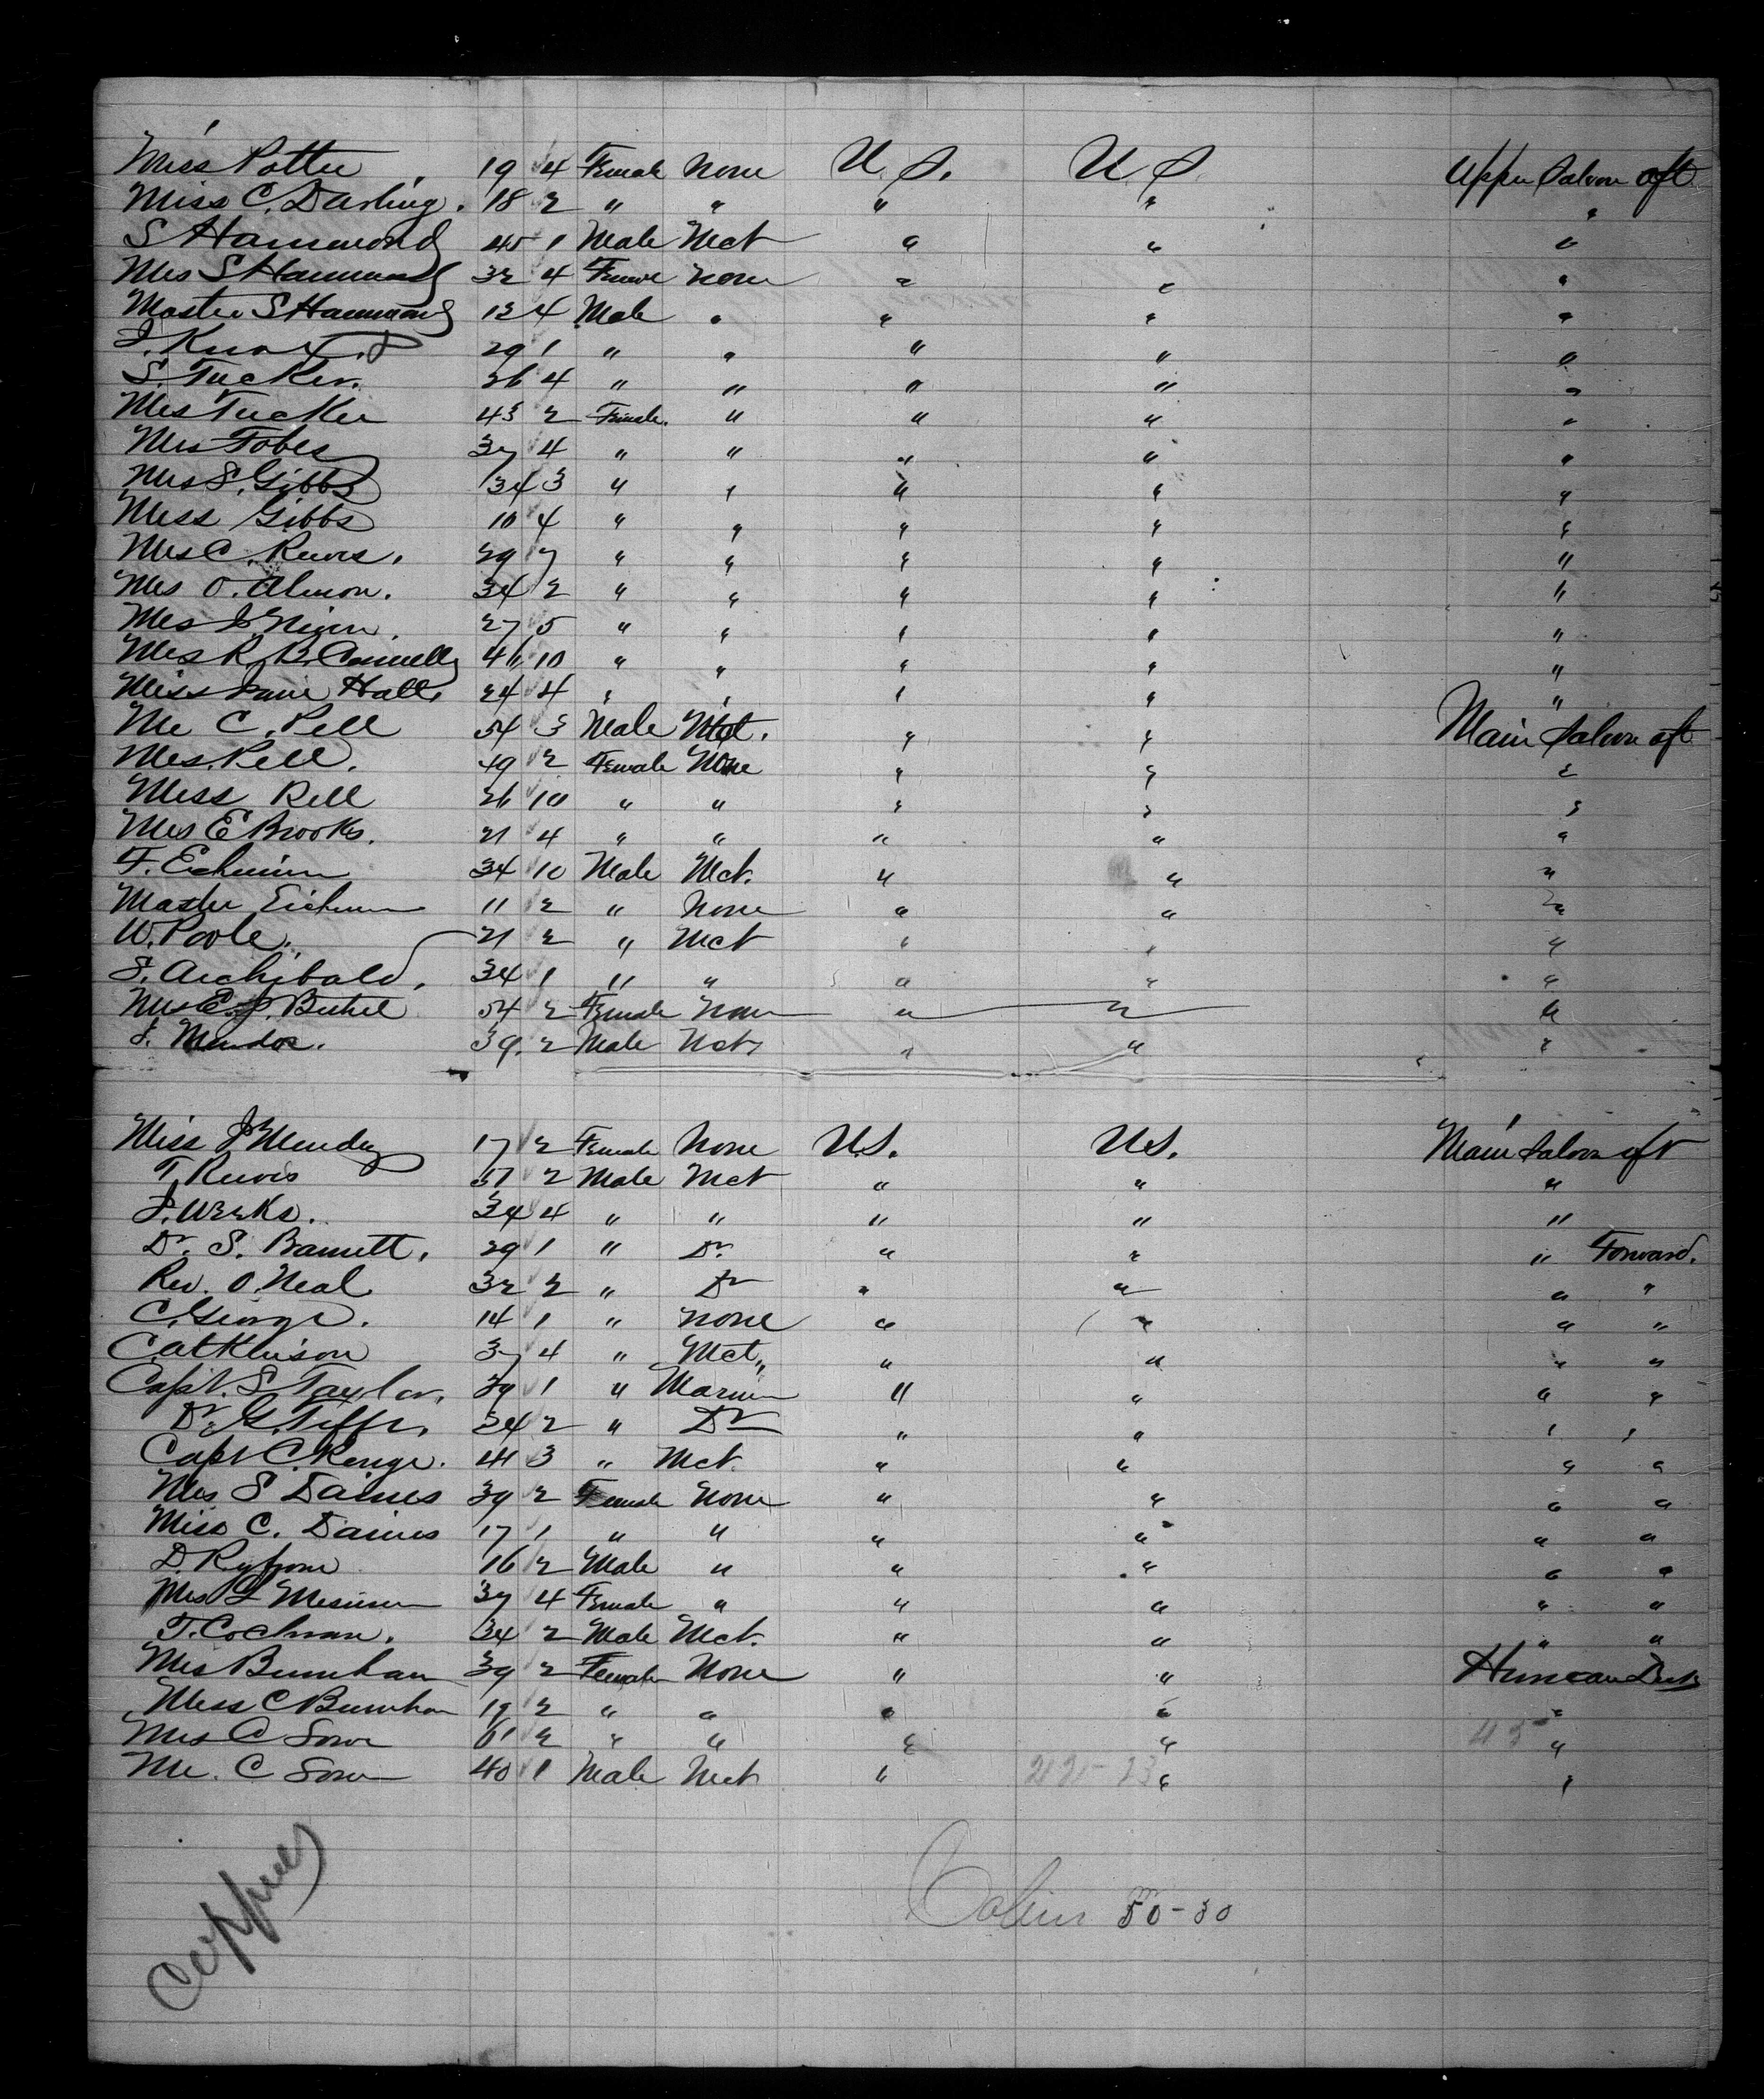 Miss Potter 19 4 Female None U.S. U.S. Upper Saloon aft
Miss C. Darling. 18 2 " " " " "
S Hammond 45 1 Male Mct " " "
Mrs S Hammond 32 4 Female None " " "
Master S Hammond 12 4 Male " " " "
29 1 " " " " "
S. Tucker. 26 4 " " " " "
Mrs Tucker 43 2 Female. " " " "
Mrs Tobes 37 4 " " " " "
Mrs S. Gibbs 34 3 " " " " "
Miss Gibbs 10 4 " " " " "
Mrs C. 29 7 " " " " "
Mrs O. Almon. 34 2 " " " " "
Mrs 27 5 " " " " "
Mrs R. B. Connelly 46 10 " " " " "
Miss Jane Hall. 24 4 " " " " "
Mr C. Pell 54 3 Male Mct. " " Main Saloon aft
Mrs. Pell. 49 2 Female None " " "
Miss Pell 26 10 " " " " "
Mrs E Brooks. 21 4 " " " " "
F. 34 10 Male Mct. " " "
Master 11 2 " None " " "
W. Poole. 21 2 " Mct " " "
S. Archibald. 34 1 " " " " "
Mrs E. J. Bethel 54 2 Female None " " "
39. 2 Male Mct. " " "
Miss 17 2 Female None U.S. U.S. Main Saloon aft
T. 2 Male Mct " " "
J. Weeks. 34 4 " " " " "
Dr. S. Barnett. 29 1 " Dr. " " " Forward.
Rev. O. Neal 32 2 " Dr " " " "
C. George. 14 1 " None " " " "
C. Atkinson 37 4 " Mct " " " "
Capt. S Taylor. 39 1 " Mariner " " " "
Dr. G. 34 2 " Dr " " " "
Capt C. 44 3 " Mct. " " " "
Mrs S Daines 39 2 Female None " " " "
Miss C. Daines 17 1 " " " " " "
D. 16 2 Male " " " " "
Mrs L 37 4 Female " " " " "
T. Cochran. 34 2 Male Mct. " " " "
Mrs Burnham 39 2 Female None " " Hurricane Deck
Miss C Burnham 19 2 " " " " "
Mrs C 2 " " " " "
Mr. C 40 1 Male Mct " " "
Cabin 50-30